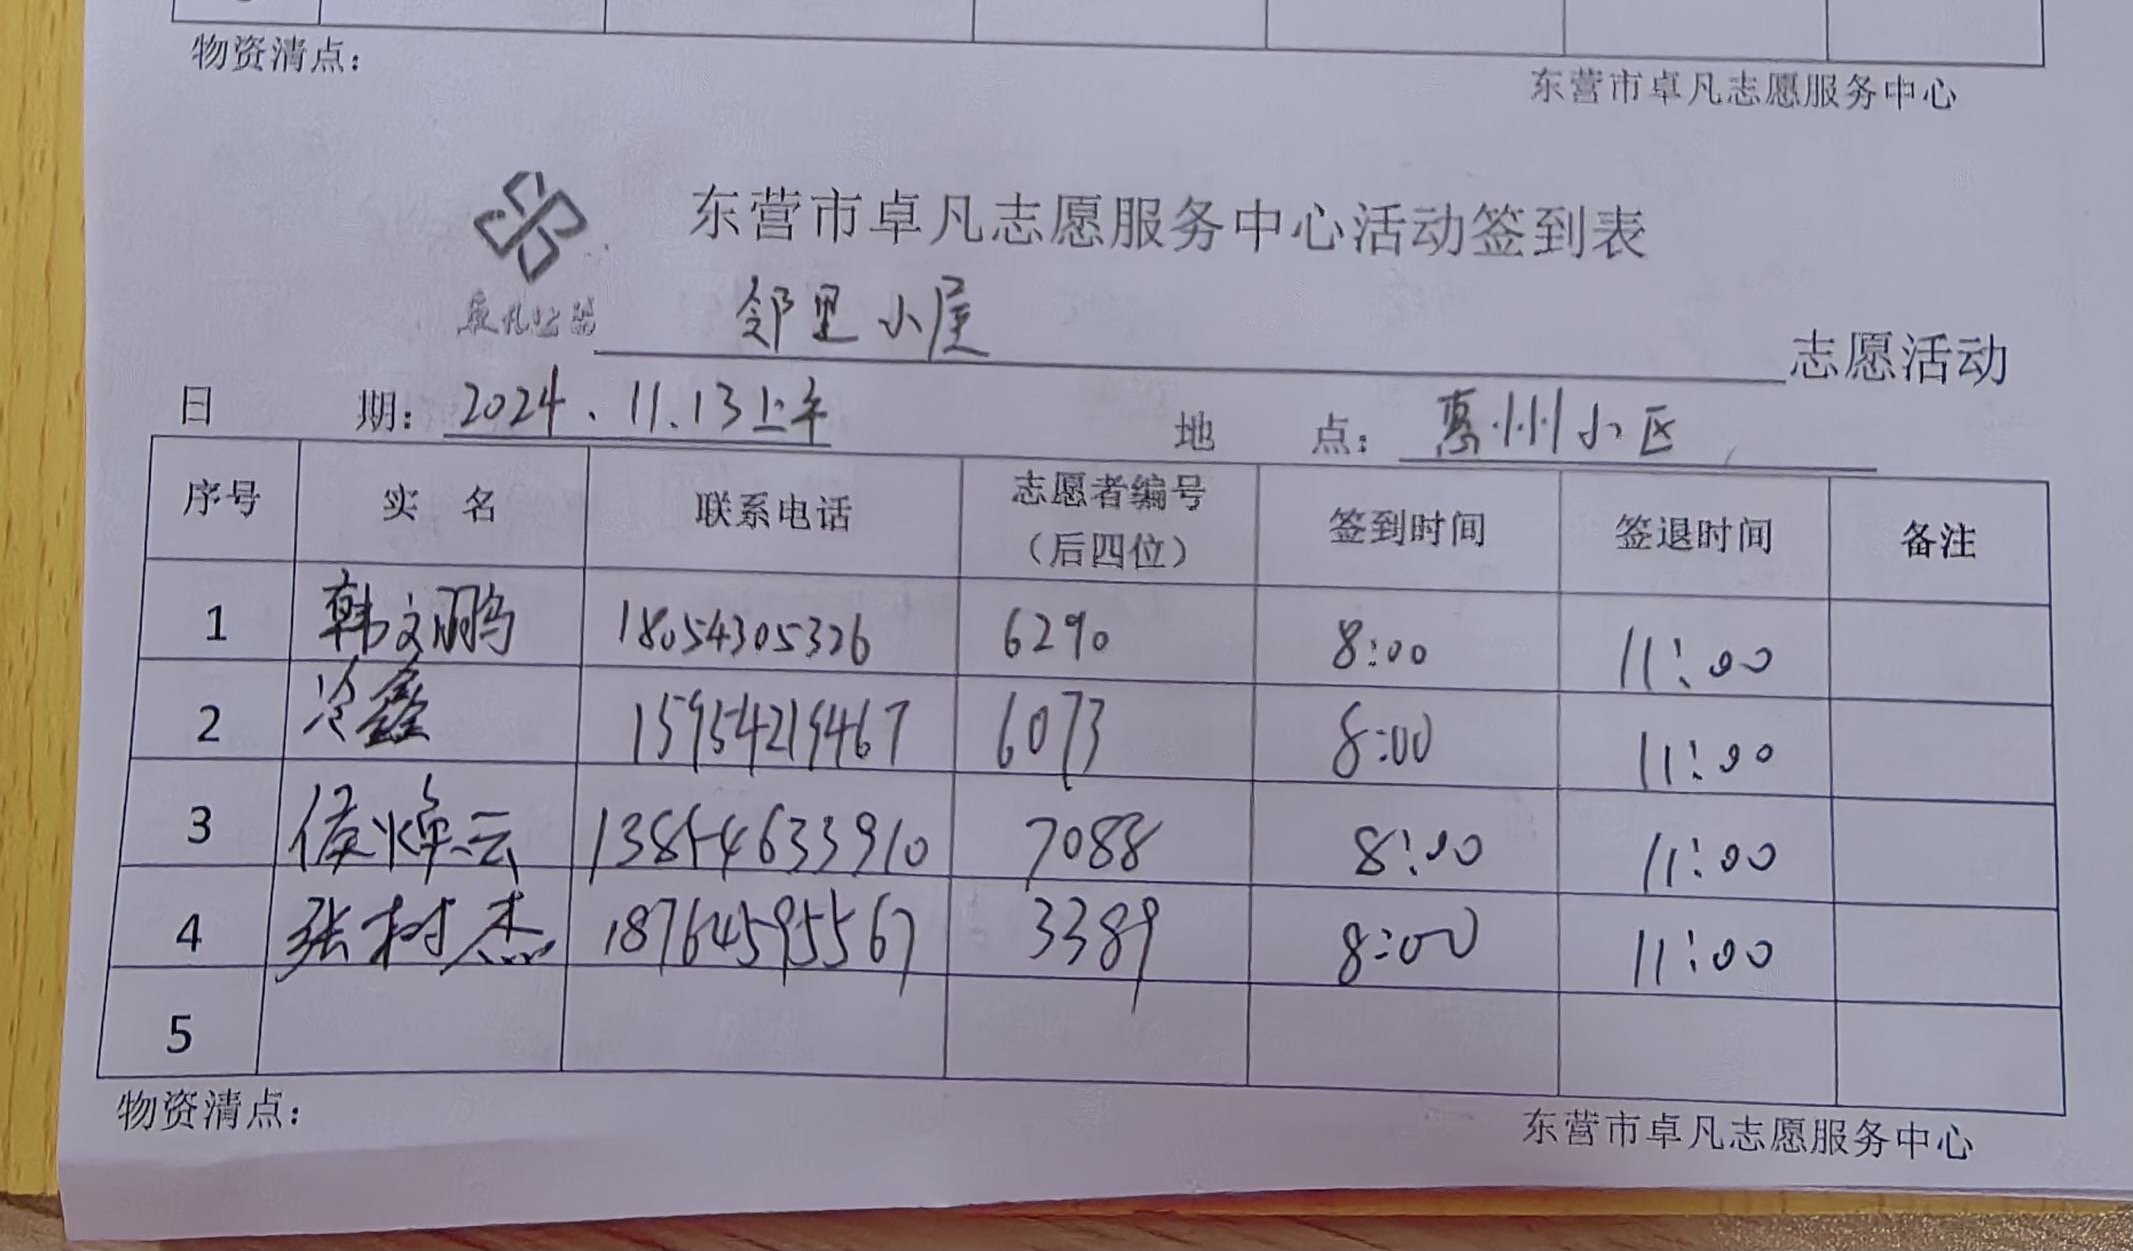 物资清点：
东营市卓凡志愿服务中心
东营市卓凡志愿服务中心活动签到表
邻里小屋 志愿活动
日 期：2024.11.13上午 地 点：惠州小区
序号 实 名 联系电话 志愿者编号（后四位） 签到时间 签退时间 备注
1 韩文鹏 18054305326 6290 8:00 11:00
2 冷鑫 15954219467 6073 8:00 11:00
3 侯焕云 13854633910 7088 8:00 11:00
4 张树杰 18764595567 3389 8:00 11:00
5
物资清点：
东营市卓凡志愿服务中心